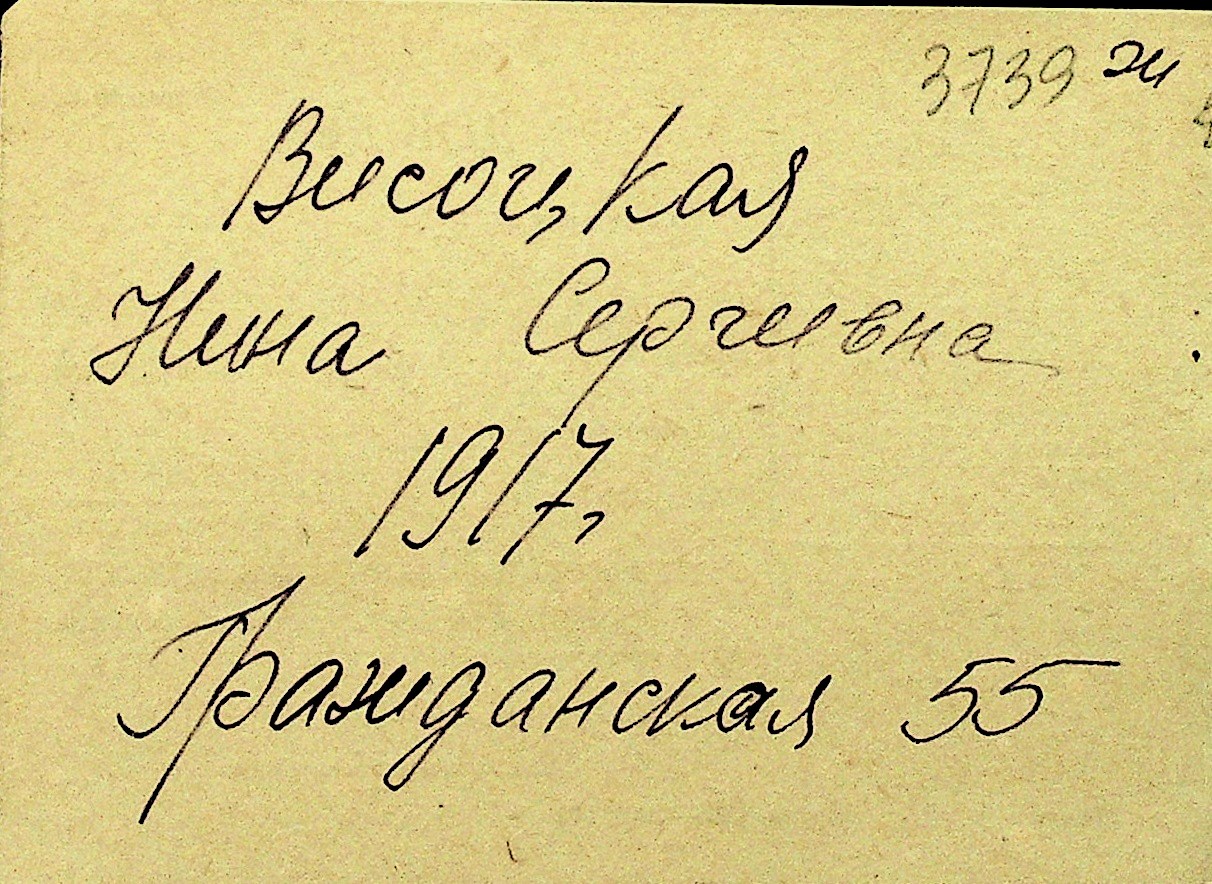 3739 ж
Висоцкая
Нина Сергеивна
1917г
Гражданская 55